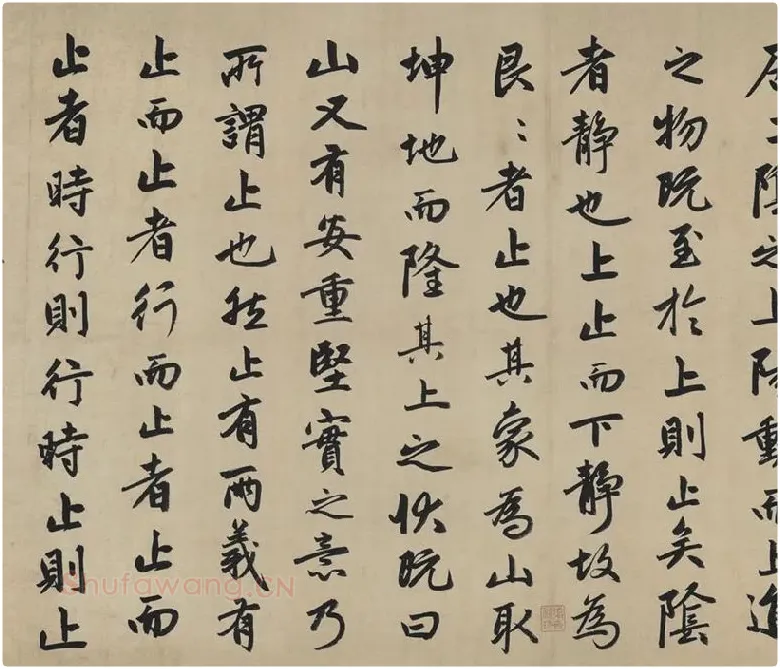 二陰之上陽重而上進
之物既至於上則止矣陰
者靜也上止而下靜故為
艮〻者止也其象為山取
坤地而隆其上之狀既曰
山又有安重堅實之意乃
所謂止也然止有兩義有
止而止者行而止者止而
止者時行則行時止則止
Shufawang.CN